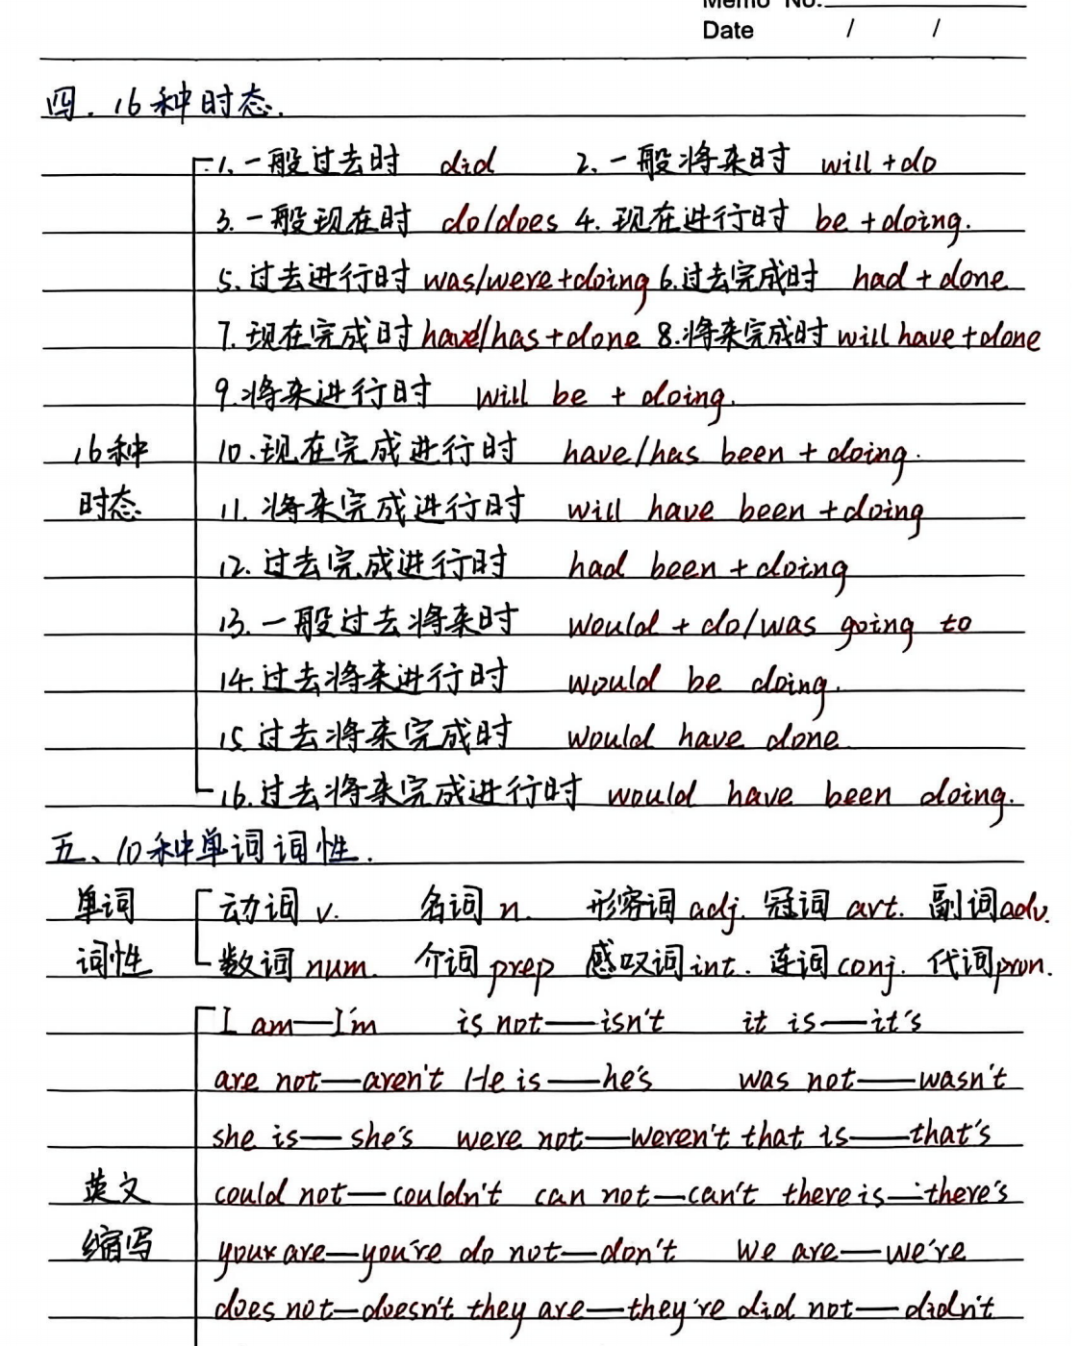 Memo No.
Date / /
四. 16种时态.
1. 一般过去时 did 2. 一般将来时 will + do
3. 一般现在时 do/does 4. 现在进行时 be + doing.
5. 过去进行时 was/were+doing 6.过去完成时 had + done
7. 现在完成时 have/has + done 8.将来完成时 will have + done
9.将来进行时 will be + doing.
16种 10.现在完成进行时 have/has been + doing.
时态 11. 将来完成进行时 will have been + doing
12. 过去完成进行时 had been + doing
13. 一般过去将来时 would + do/was going to
14.过去将来进行时 would be doing.
15 过去将来完成时 would have done
16.过去将来完成进行时 would have been doing.
五、10种单词词性.
单词 动词 v. 名词 n. 形容词 adj. 冠词 art. 副词adv.
词性 数词 num. 介词 prep 感叹词 int. 连词 conj. 代词pron.
I am—I'm is not—isn't it is—it's
are not—aren't He is—he's was not—wasn't
she is—she's were not—weren't that is—that's
英文 could not—couldn't can not—can't there is—there's
缩写 you are—you're do not—don't We are—we're
does not—doesn't they are—they're did not—didn't